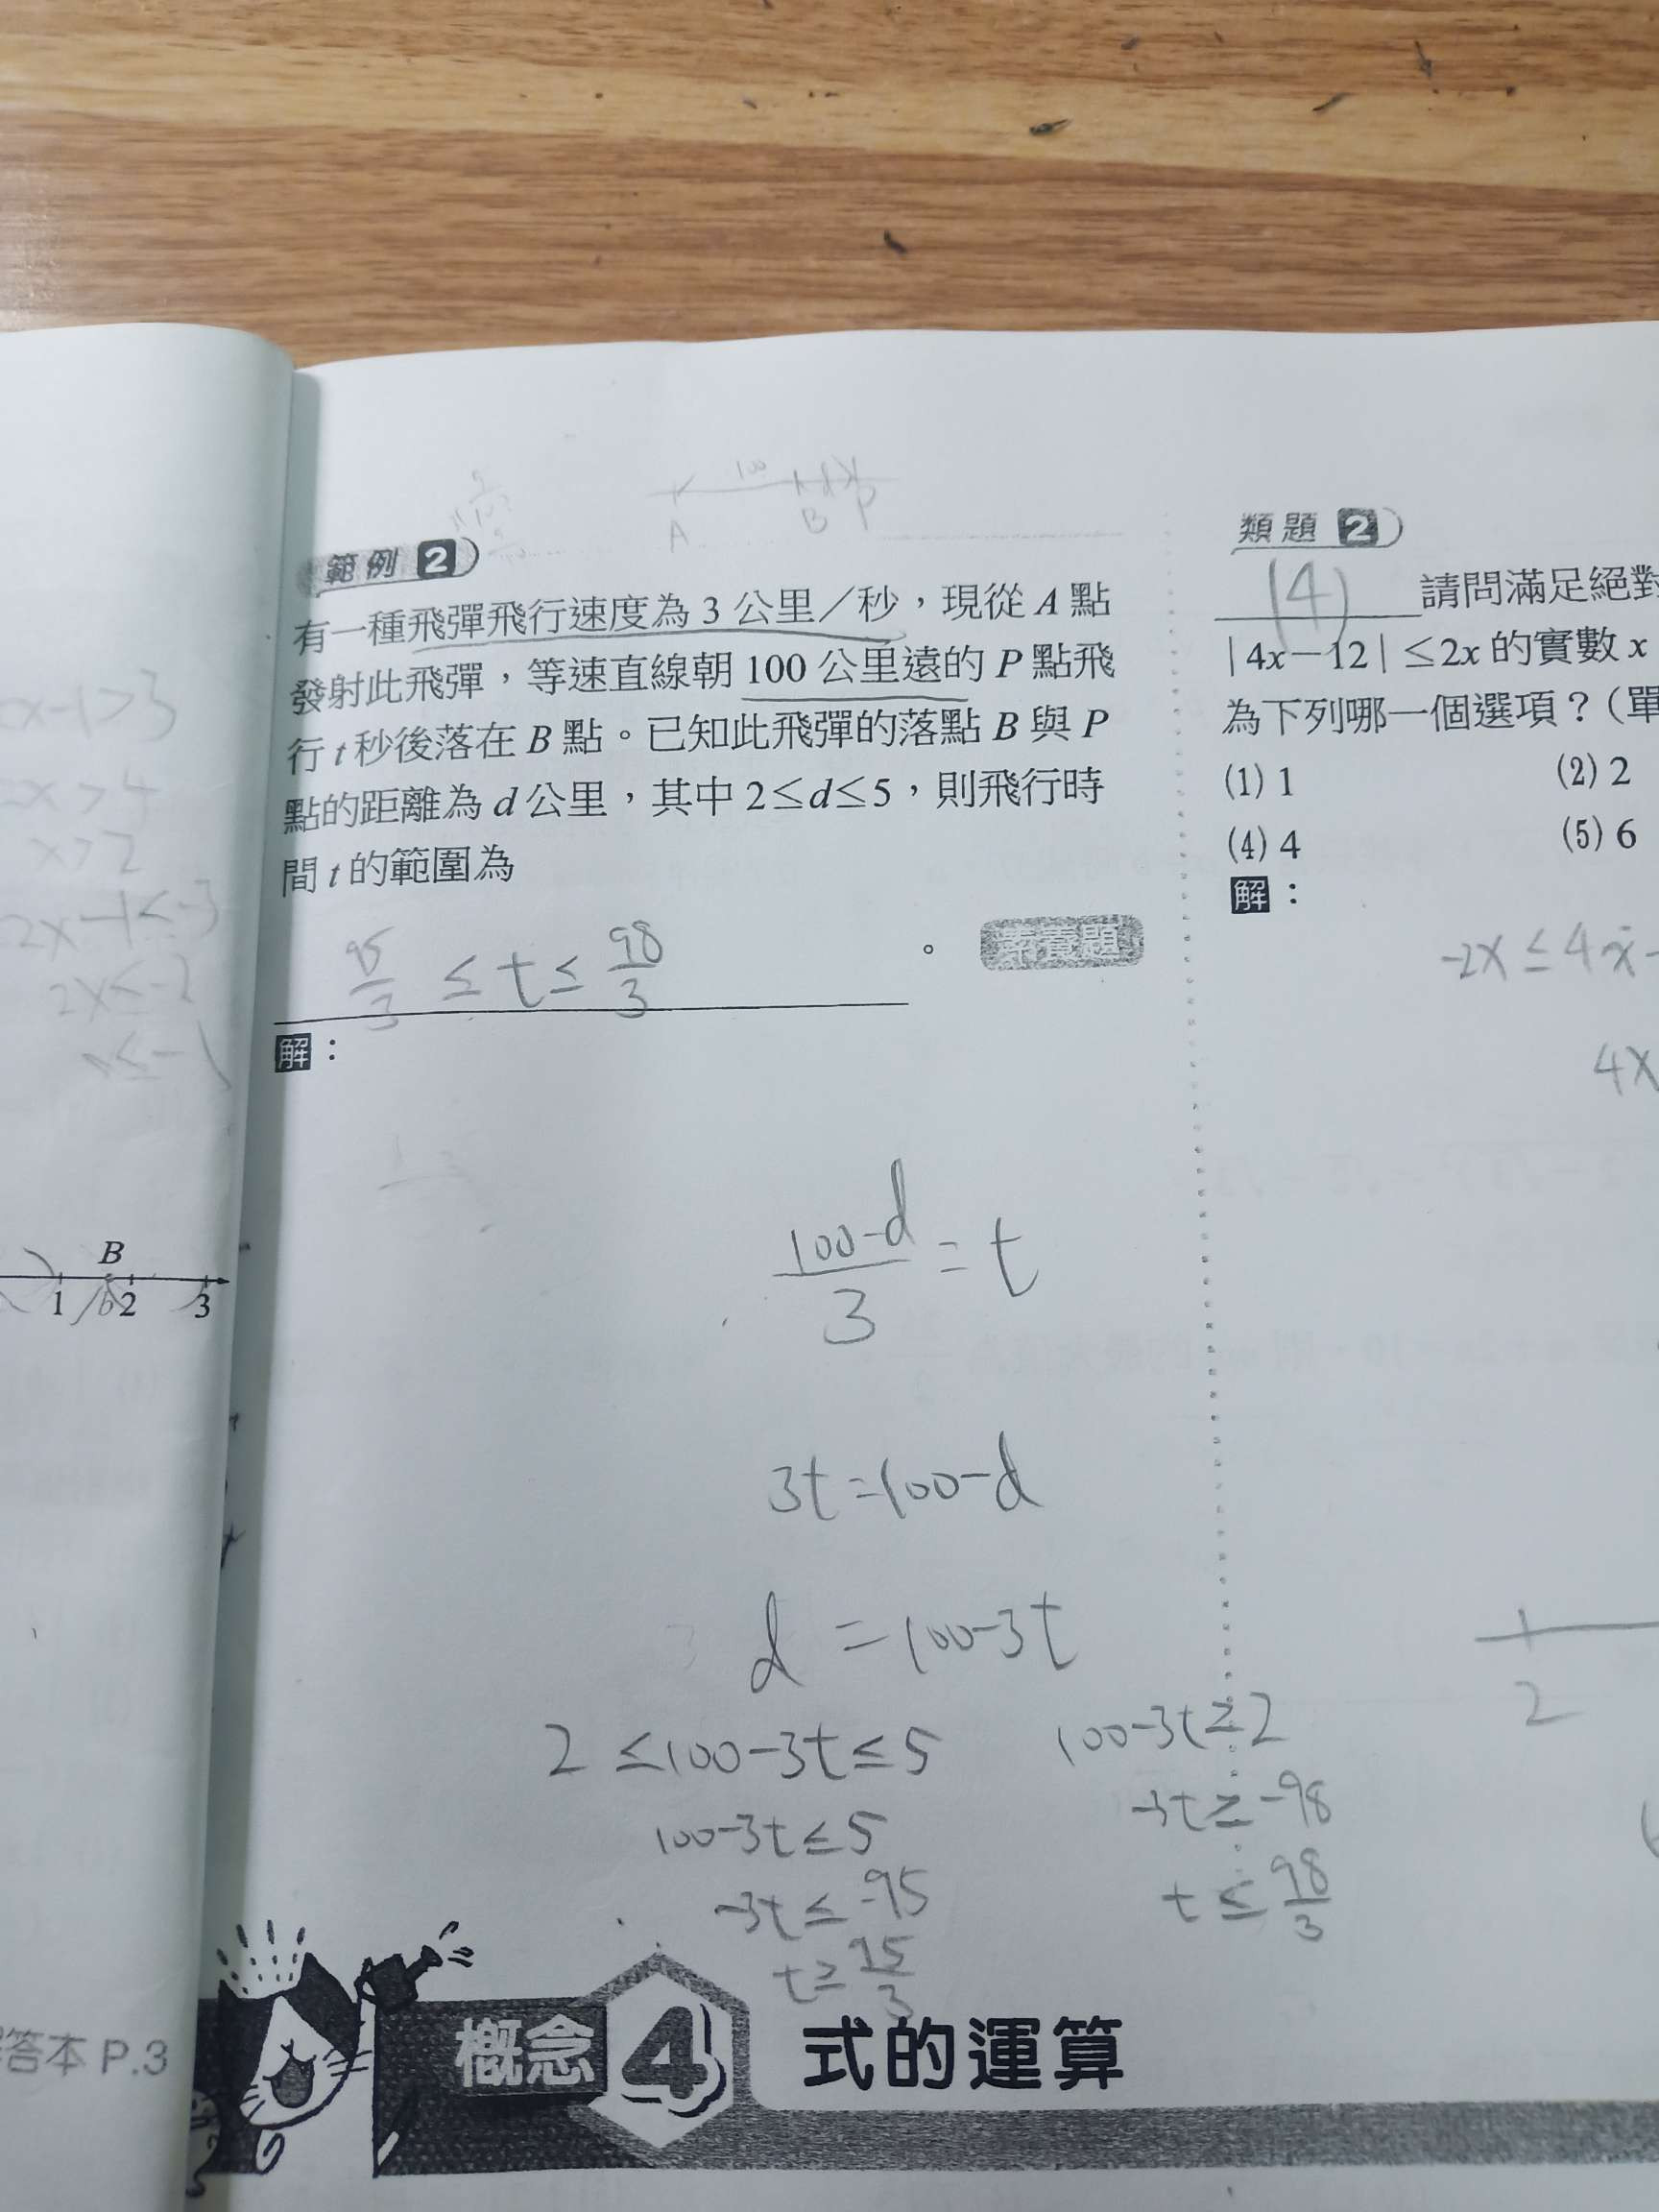 x-1>3
2x>4
x>2
2x-1≤-3
2x≤-2
x≤-1
B
1 b 2 3
答本 P.3
100
A B P
範例 2
有一種飛彈飛行速度為 3 公里／秒，現從 A 點
發射此飛彈，等速直線朝 100 公里遠的 P 點飛
行 t 秒後落在 B 點。已知此飛彈的落點 B 與 P
點的距離為 d 公里，其中 2≤d≤5，則飛行時
間 t 的範圍為
95/3 ≤ t ≤ 98/3 。 素養題
解：
(100-d)/3 = t
3t=100-d
d = 100-3t
2 ≤100-3t≤5
100-3t≤5
-3t≤-95
t≥95/3
100-3t≥2
-3t≥-98
t≤98/3
類題 2
(4) 請問滿足絕對
|4x－12|≤2x 的實數 x
為下列哪一個選項？（單
(1) 1 (2) 2
(4) 4 (5) 6
解：
-2x≤4x-
4x
2
概念 4 式的運算